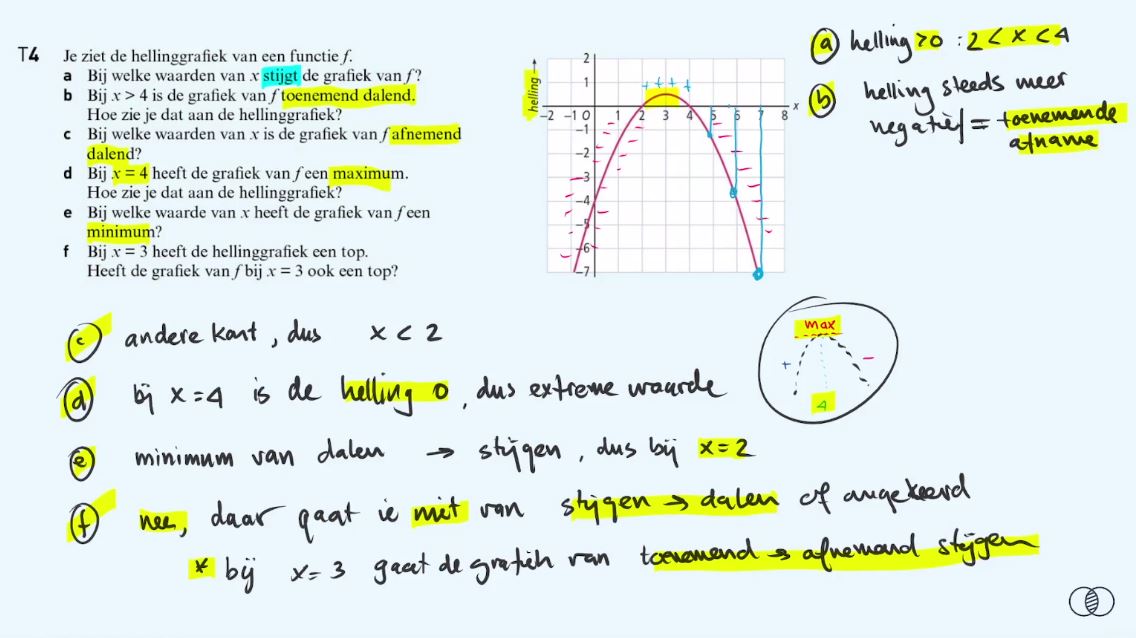 T4 Je ziet de hellinggrafiek van een functie f.
a Bij welke waarden van x stijgt de grafiek van f?
b Bij x > 4 is de grafiek van f toenemend dalend.
Hoe zie je dat aan de hellinggrafiek?
c Bij welke waarden van x is de grafiek van f afnemend
dalend?
d Bij x = 4 heeft de grafiek van f een maximum.
Hoe zie je dat aan de hellinggrafiek?
e Bij welke waarde van x heeft de grafiek van f een
minimum?
f Bij x = 3 heeft de hellinggrafiek een top.
Heeft de grafiek van f bij x = 3 ook een top?
helling →
2
1
+ + + +
-2 -1 0 1 2 3 4 5 6 7 8 x
-1
-2
-3
-4
-5
-6
-7
a helling >0 : 2 < x < 4
b helling steeds meer
negatief = toenemende
afname
c andere kant, dus x < 2
d bij x=4 is de helling 0, dus extreme waarde
max
+ -
4
e minimum van dalen → stijgen, dus bij x=2
f nee, daar gaat ie niet van stijgen → dalen of angekeerd
* bij x=3 gaat de grafiek van toenemend → afnemend stijgen